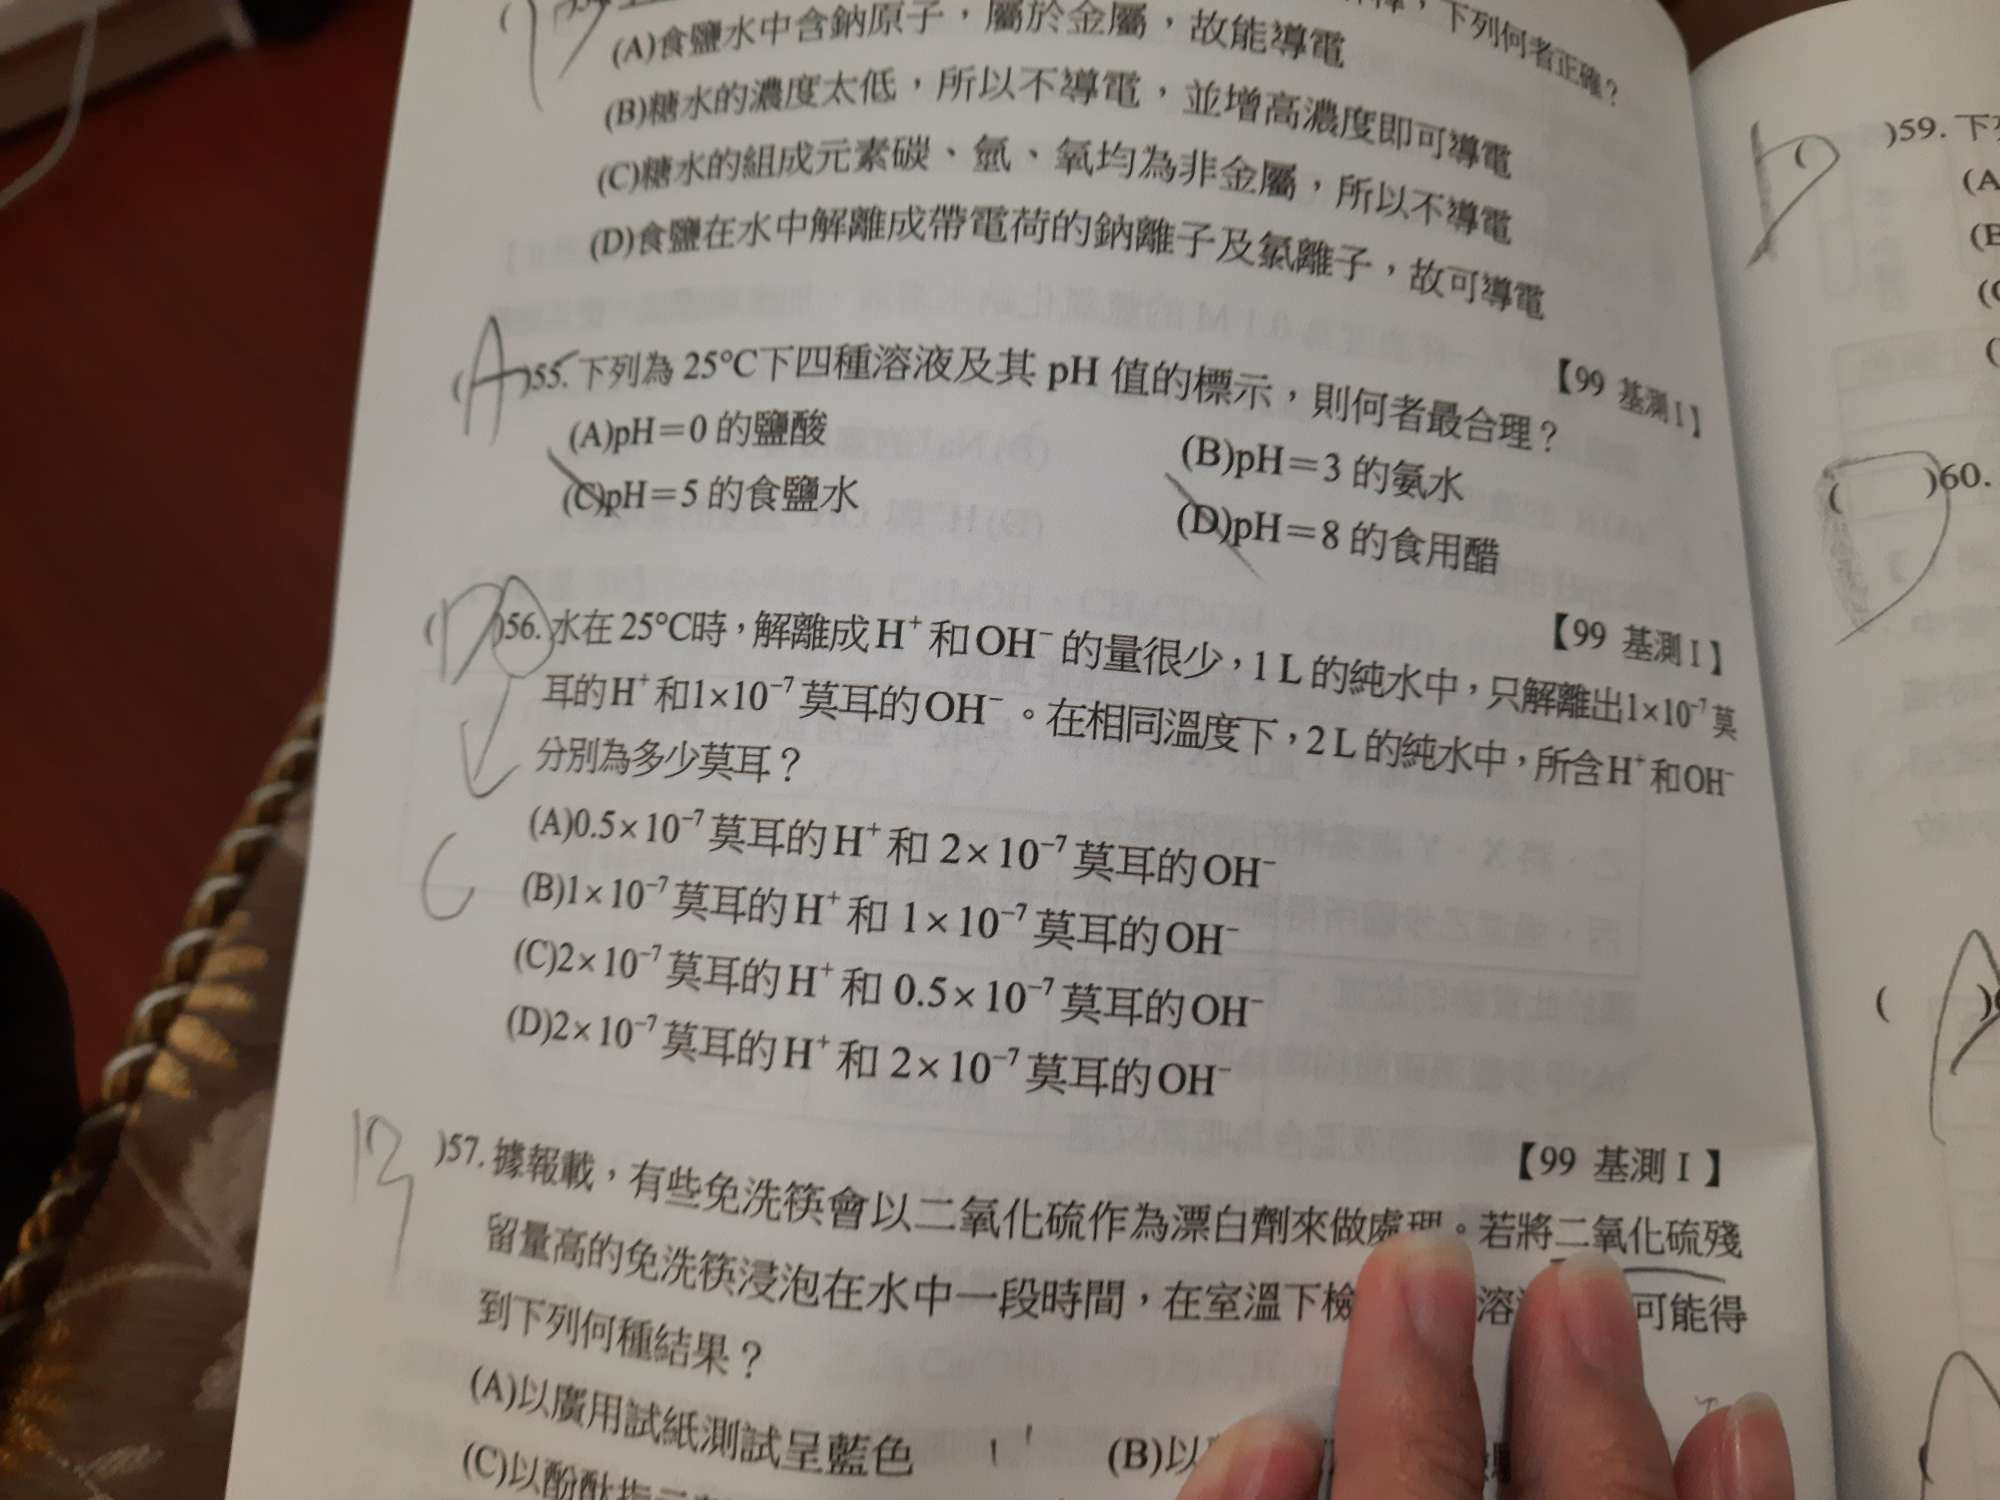 下列何者正確？
(A)食鹽水中含鈉原子，屬於金屬，故能導電
(B)糖水的濃度太低，所以不導電，並增高濃度即可導電
(C)糖水的組成元素碳、氫、氧均為非金屬，所以不導電
(D)食鹽在水中解離成帶電荷的鈉離子及氯離子，故可導電
【99 基測I】
(A)55.下列為 25°C下四種溶液及其 pH 值的標示，則何者最合理？
(A)pH＝0 的鹽酸 (B)pH＝3 的氨水
(C)pH＝5 的食鹽水 (D)pH＝8 的食用醋
【99 基測I】
(D)56.水在25°C時，解離成H⁺和OH⁻的量很少，1 L的純水中，只解離出1×10⁻⁷莫
耳的H⁺和1×10⁻⁷莫耳的OH⁻。在相同溫度下，2 L的純水中，所含H⁺和OH⁻
分別為多少莫耳？
(A)0.5×10⁻⁷莫耳的H⁺和 2×10⁻⁷莫耳的OH⁻
(B)1×10⁻⁷莫耳的H⁺和 1×10⁻⁷莫耳的OH⁻
C
(C)2×10⁻⁷莫耳的H⁺和 0.5×10⁻⁷莫耳的OH⁻
(D)2×10⁻⁷莫耳的H⁺和 2×10⁻⁷莫耳的OH⁻
【99 基測I】
)57.據報載，有些免洗筷會以二氧化硫作為漂白劑來做處理。若將二氧化硫殘
留量高的免洗筷浸泡在水中一段時間，在室溫下檢 溶 可能得
到下列何種結果？
(A)以廣用試紙測試呈藍色 (B)以
(C)以酚酞指
( )59. 下
(A
(B
( )60.
( )